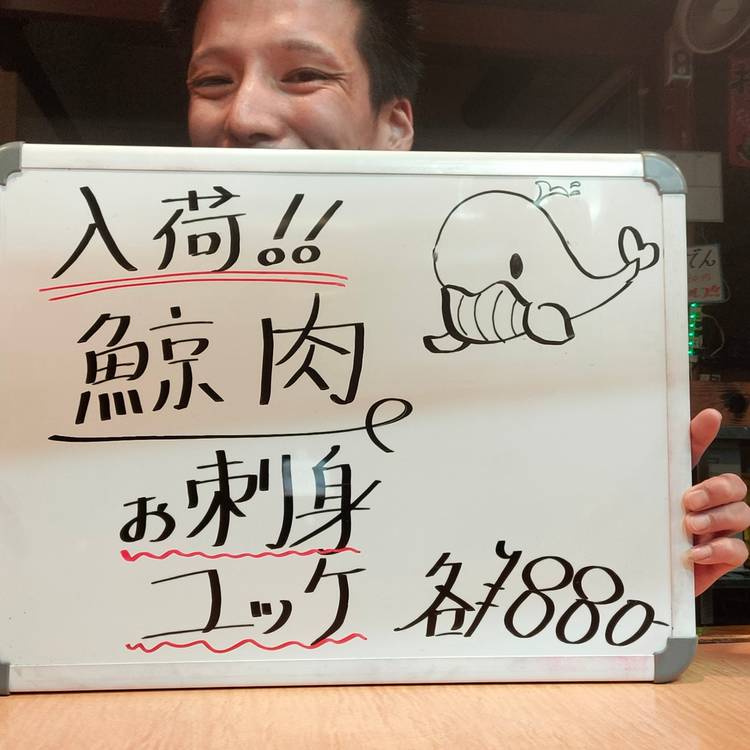 入荷!!
鯨肉
お刺身
ユッケ 各¥880-